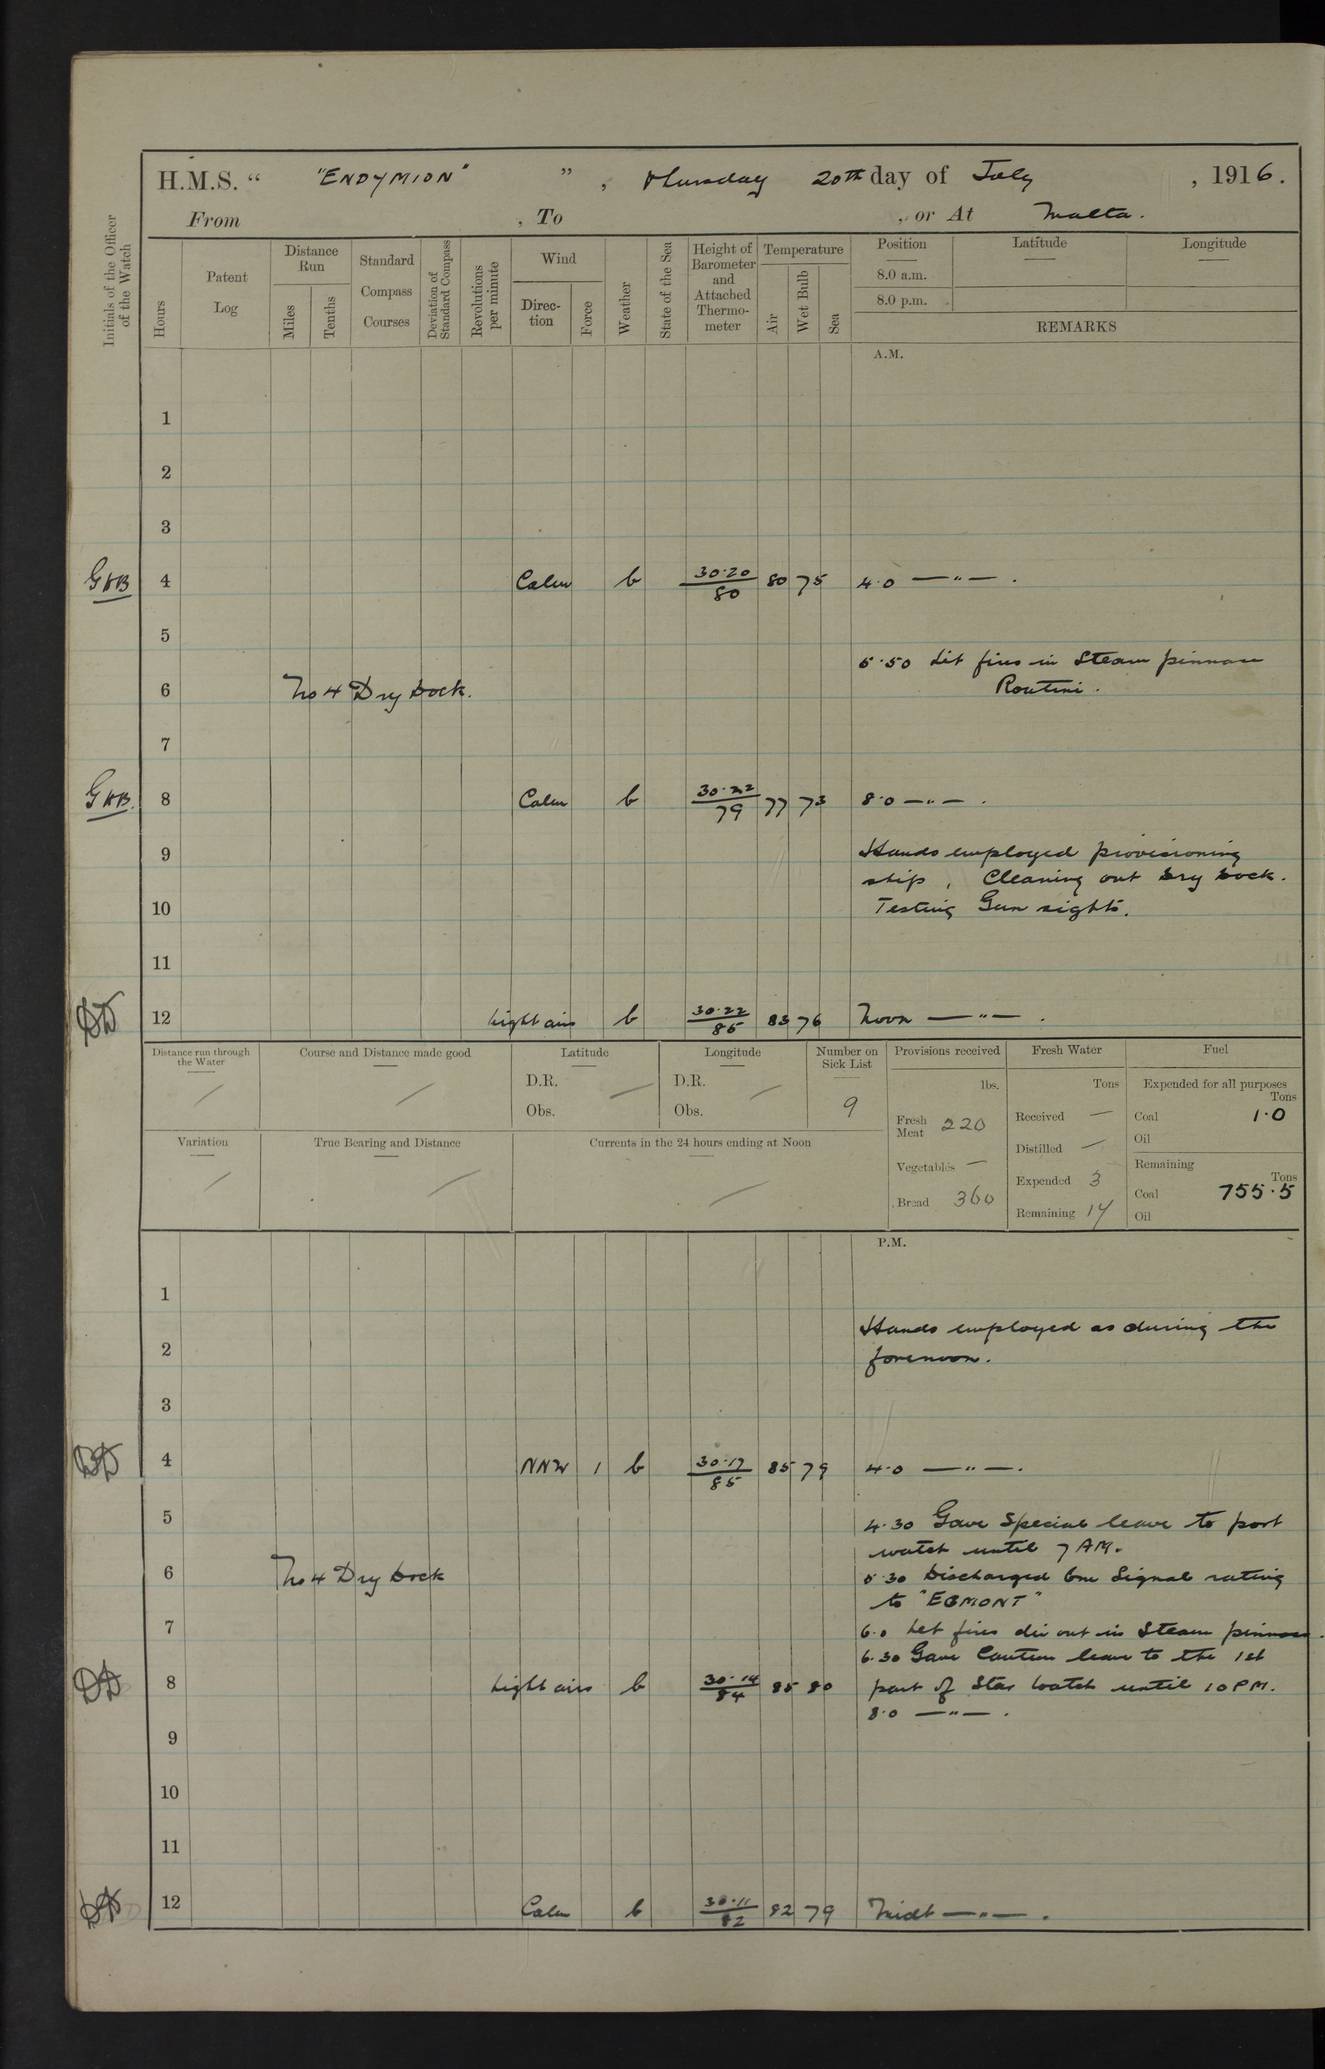 H.M.S. “ "ENDYMION" ” , Thursday 20th day of July , 1916.
From , To , or At Malta.
Initials of the Officer of the Watch
Hours
Patent Log
Distance Run
Miles
Tenths
Standard Compass Courses
Deviation of Standard Compass
Revolutions per minute
Wind
Direc-tion
Force
Weather
State of the Sea
Height of Barometer and Attached Thermo-meter
Temperature
Air
Wet Bulb
Sea
Position Latitude Longitude
8.0 a.m.
8.0 p.m.
REMARKS
A.M.
1
2
3
4 Calm b 30.20/80 80 75 4.0 — " — .
5
5.50 Lit fires in Steam pinnace
6 No 4 Dry Dock. Routine.
7
8 Calm b 30.22/79 77 73 8.0 — " — .
9 Hands employed provisioning
ship, Cleaning out Dry Dock.
10 Testing Gun sights.
11
12 Light airs b 30.22/85 83 76 Noon — " — .
Distance run through the Water /
Course and Distance made good /
Latitude
D.R. —
Obs.
Longitude
D.R. —
Obs.
Number on Sick List
9
Provisions received
lbs.
Fresh Meat 220
Vegetables —
Bread 360
Fresh Water
Tons
Received —
Distilled —
Expended 3
Remaining 14
Fuel
Expended for all purposes
Tons
Coal 1.0
Oil
Remaining
Tons
Coal 755.5
Oil
Variation /
True Bearing and Distance /
Currents in the 24 hours ending at Noon /
P.M.
1
Hands employed as during the
2 forenoon.
3
4 NNW 1 b 30.17/85 85 79 4.0 — " — .
5 4.30 Gave Special leave to port
watch until 7 AM.
6 No 4 Dry Dock 5.30 Discharged One Signal rating
to "EGMONT"
7 6.0 Let fires die out in Steam pinnace.
6.30 Gave Canteen leave to the 1st
8 Light airs b 30.14/84 85 80 part of Star Watch until 10 PM.
8.0 — " — .
9
10
11
12 Calm b 30.11/82 82 79 Midt — " — .